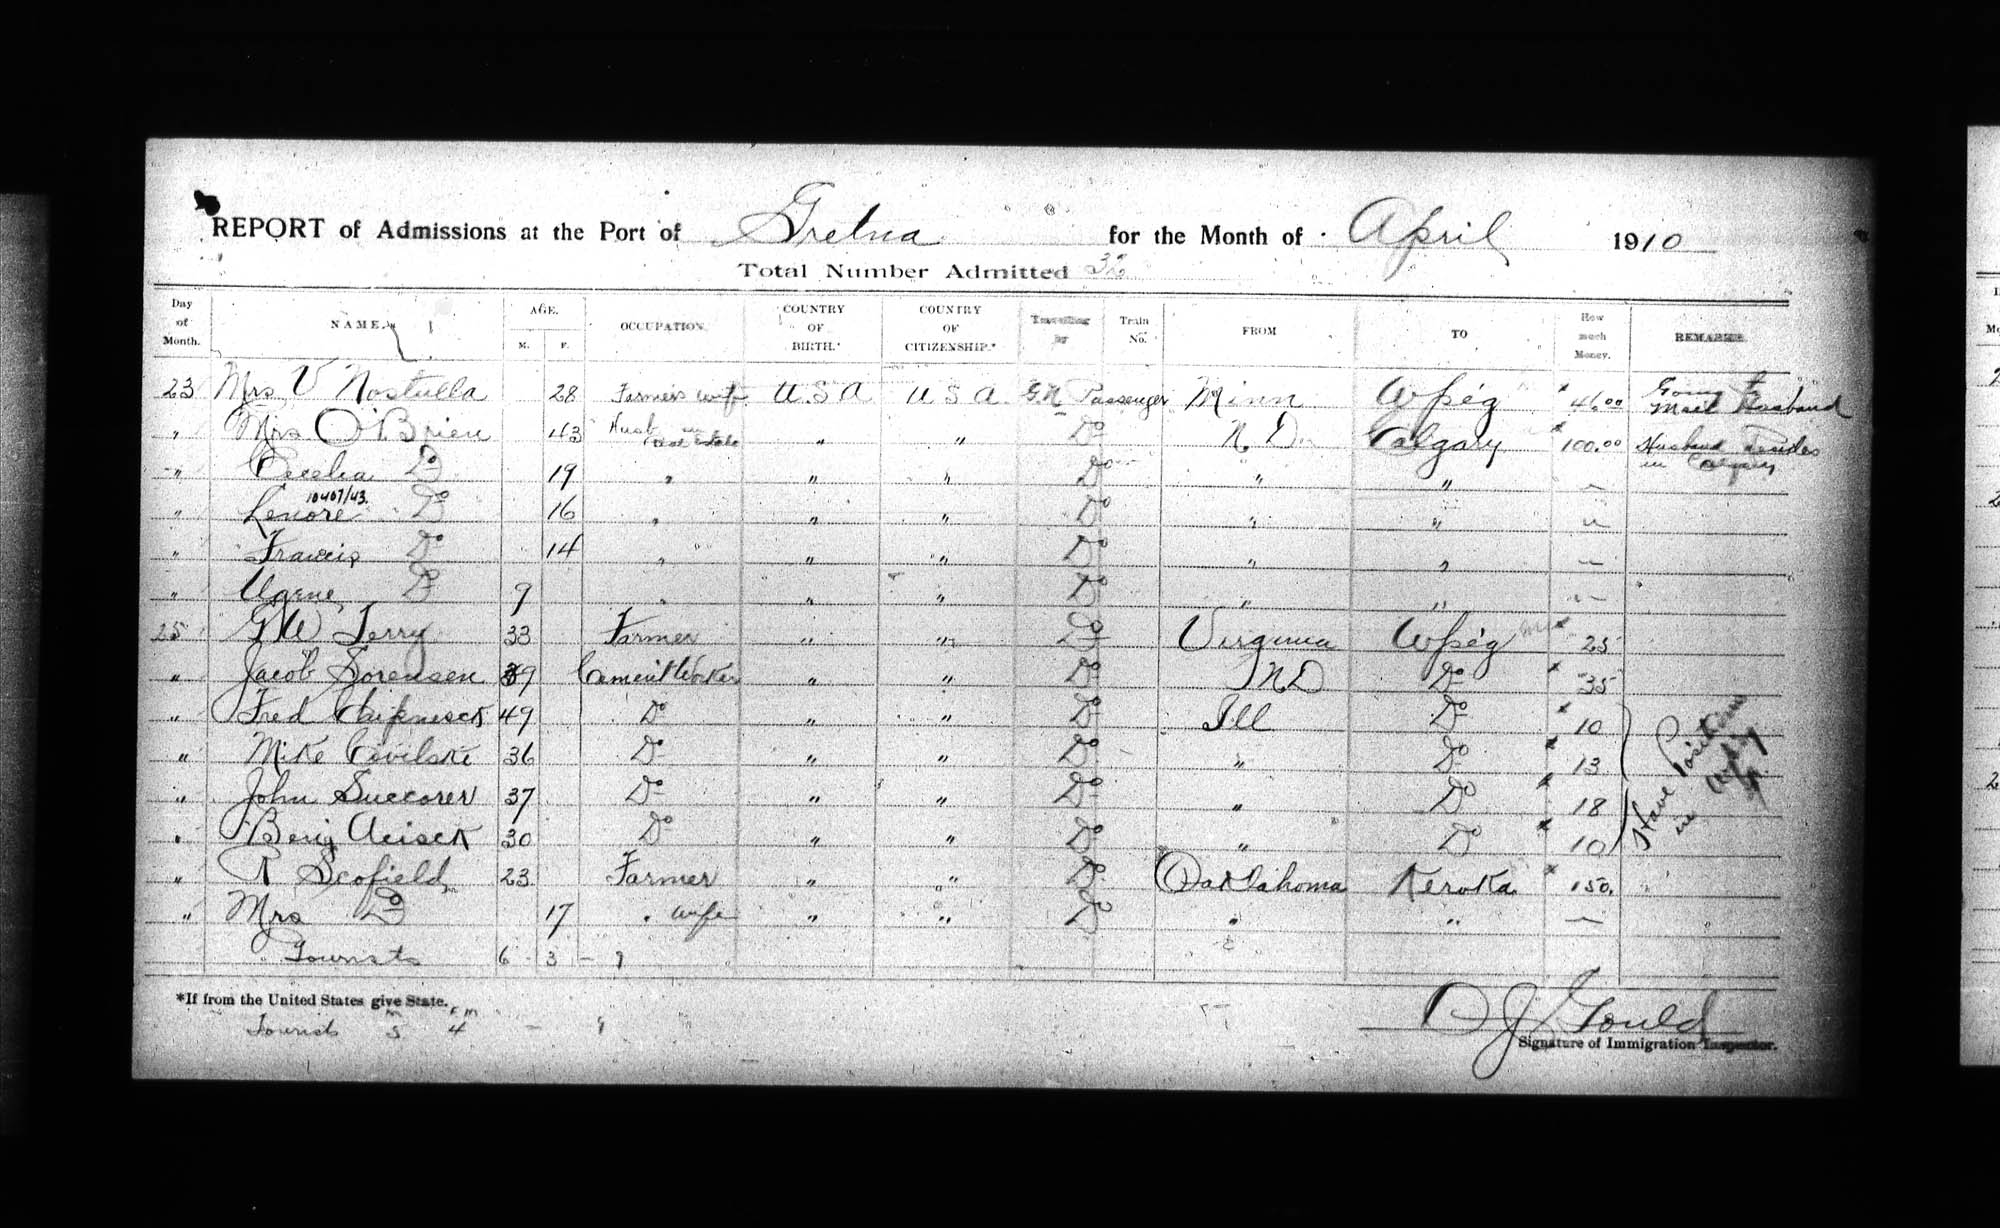 REPORT of Admissions at the Port of Gretna for the Month of April 1910
Total Number Admitted 32
Day of Month. NAME. AGE. M. F. OCCUPATION. COUNTRY OF BIRTH.* COUNTRY OF CITIZENSHIP.* Travelling by Train No. FROM TO How much Money. REMARKS.
23 Mrs V Nostulla 28 Farmers wife U.S.A U S A G.N. Passenger Minn Wpeg 46.00 Going to Meet Husband
" Mrs O'Brien 43 Husb in Real Estate " " Do N D Calgary 100.00 Husband Resides in Calgary
" Cecelia Do 19 " " " Do " " "
10407/43.
" Lenore Do 16 " " " Do " " "
" Francis Do 14 " " " Do " " "
" Do 9 " " " Do " " "
25 G W Terry 33 Farmer " " Do Virginia Wpeg 25
" Jacob Sorensen 39 Cement Worker " " Do N D Do 35
" Fred 49 Do " " Do Ill Do 10 Have Positions in Wpeg
" Mike Covilske 36 Do " " Do " Do 13
" John Succorer 37 Do " " Do " Do 18
" Benj 30 Do " " Do " Do 10
" R Scofield 23 Farmer " " Do Oaklahoma Keroka 150.
" Mrs Do 17 " wife " " Do " " —
Tourists 6 - 3 - 9
*If from the United States give State.
Tourists M 5 4 - 9
D J Gould
Signature of Immigration Inspector.